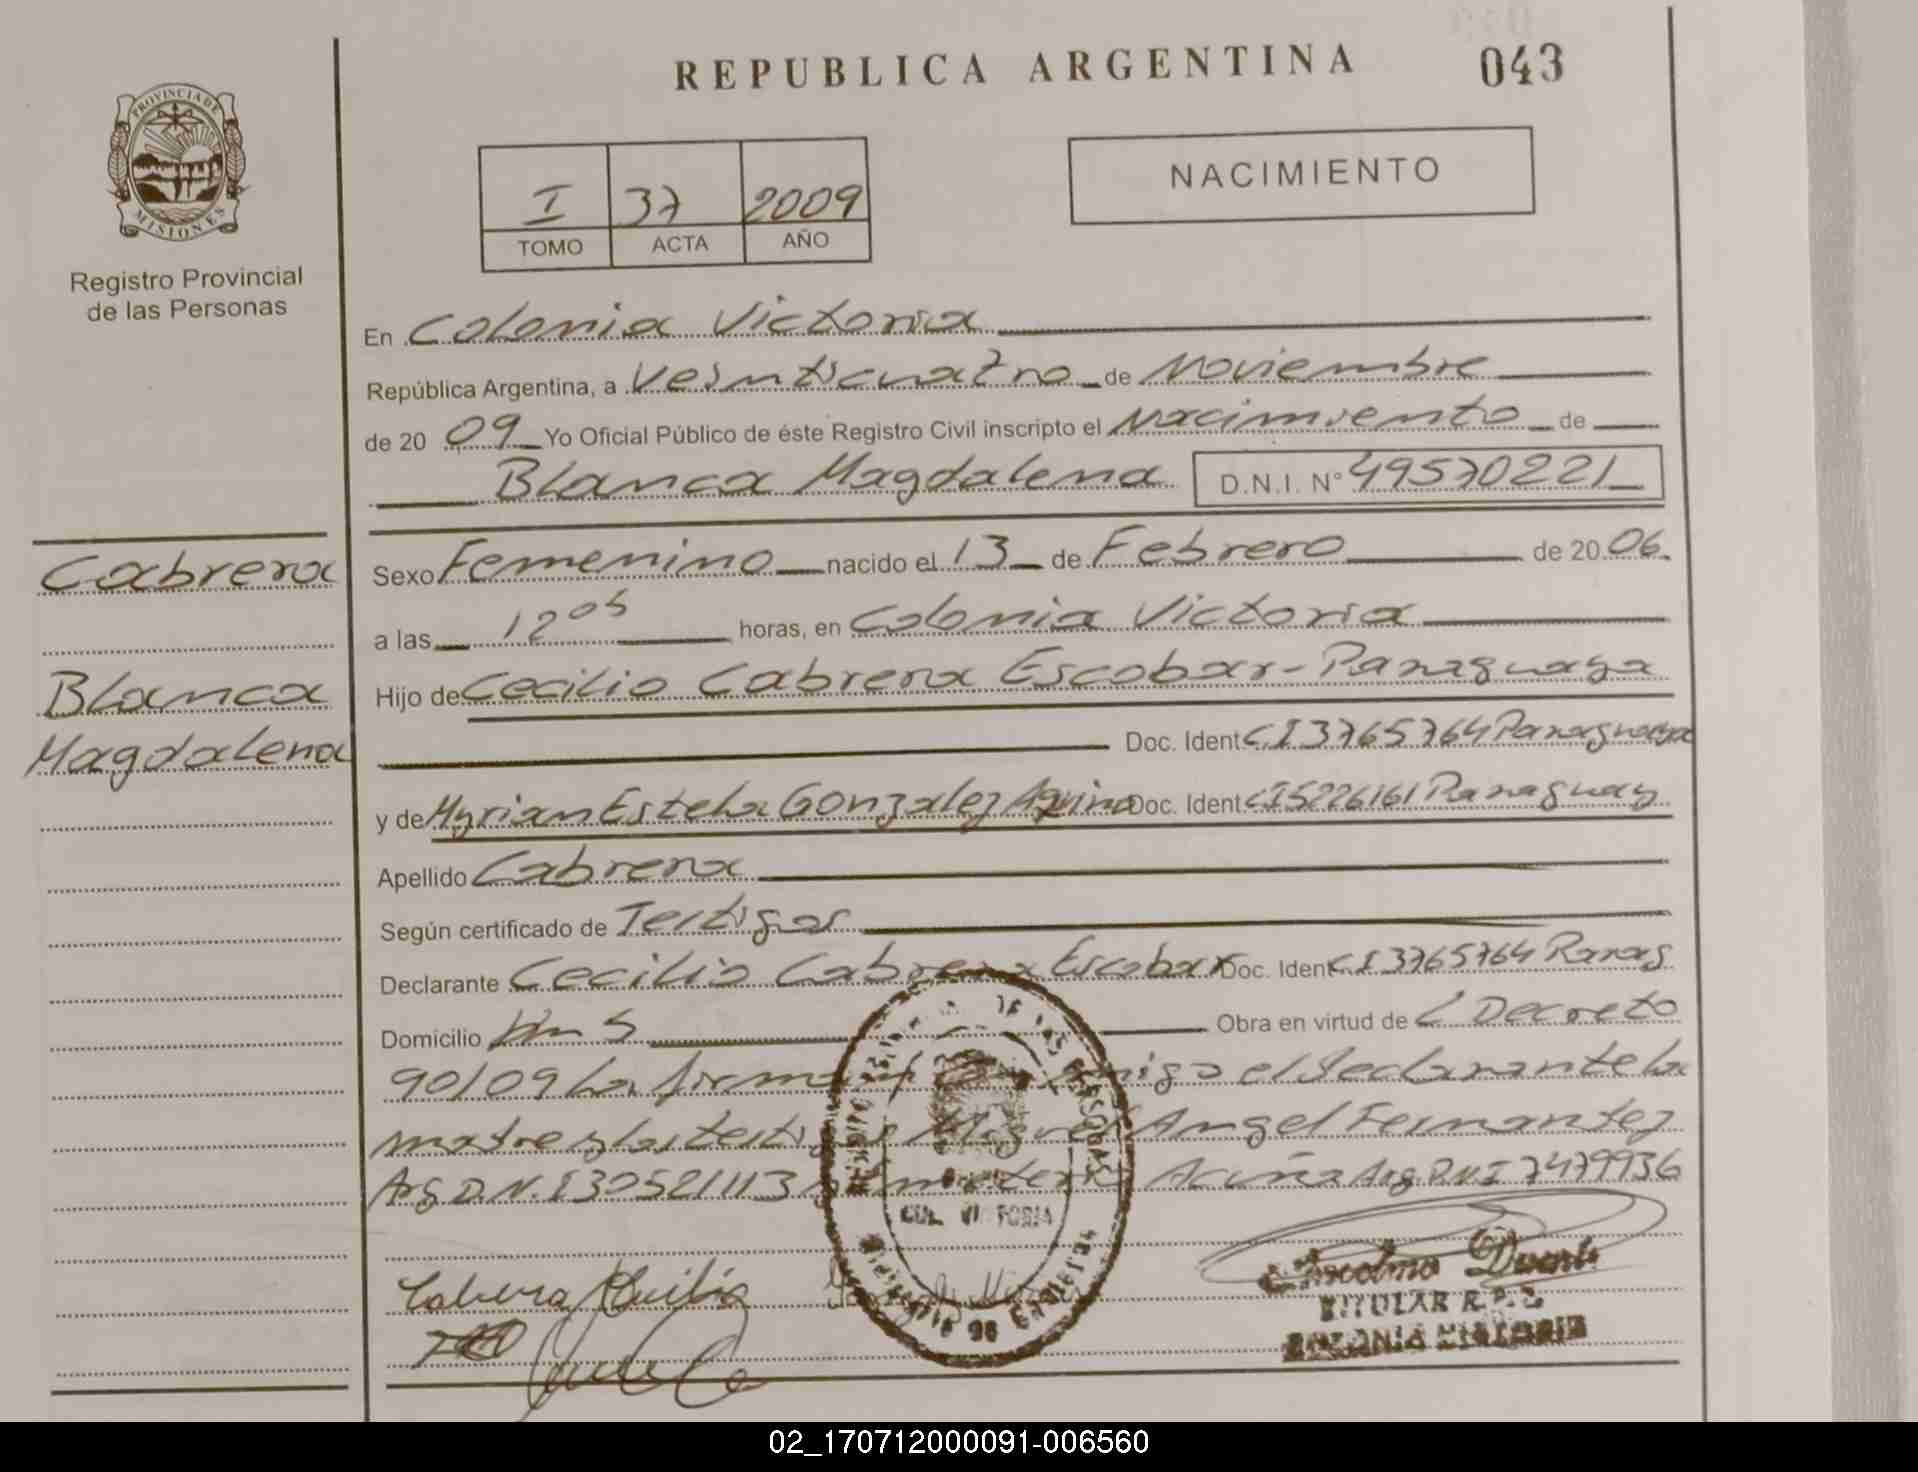 REPUBLICA ARGENTINA
043
PROVINCIA DE
MISIONES
Registro Provincial
de las Personas
I 37 2009
TOMO ACTA AÑO
NACIMIENTO
En Colonia Victoria
República Argentina, a Veinticuatro de Noviembre
de 20 09 Yo Oficial Público de éste Registro Civil inscripto el Nacimiento de
Blanca Magdalena D.N.I. N° 49570221
Cabrera
Blanca
Magdalena
Sexo Femenino nacido el 13 de Febrero de 20 06
a las 12 05 horas, en Colonia Victoria
Hijo de Cecilio Cabrera Escobar - Paraguaya
Doc. Ident CI 3765764 Paraguaya
y de Myrian Estela Gonzalez Aquino Doc. Ident CI 5226161 Paraguay
Apellido Cabrera
Según certificado de Testigos
Declarante Cecilio Cabrera Escobar Doc. Ident CI 3765764 Parag
Domicilio Km 5 Obra en virtud de L Decreto
90/09 La firman el declarante la
madre y los testigos Miguel Angel Fernandez
Arg D.N.I 30521113 Acuña Arg D.N.I 7479936
COL. VICTORIA
DE LAS PERSONAS
Cabrera Cecilio
TITULAR R.P.P.
COLONIA VICTORIA
02_170712000091-006560